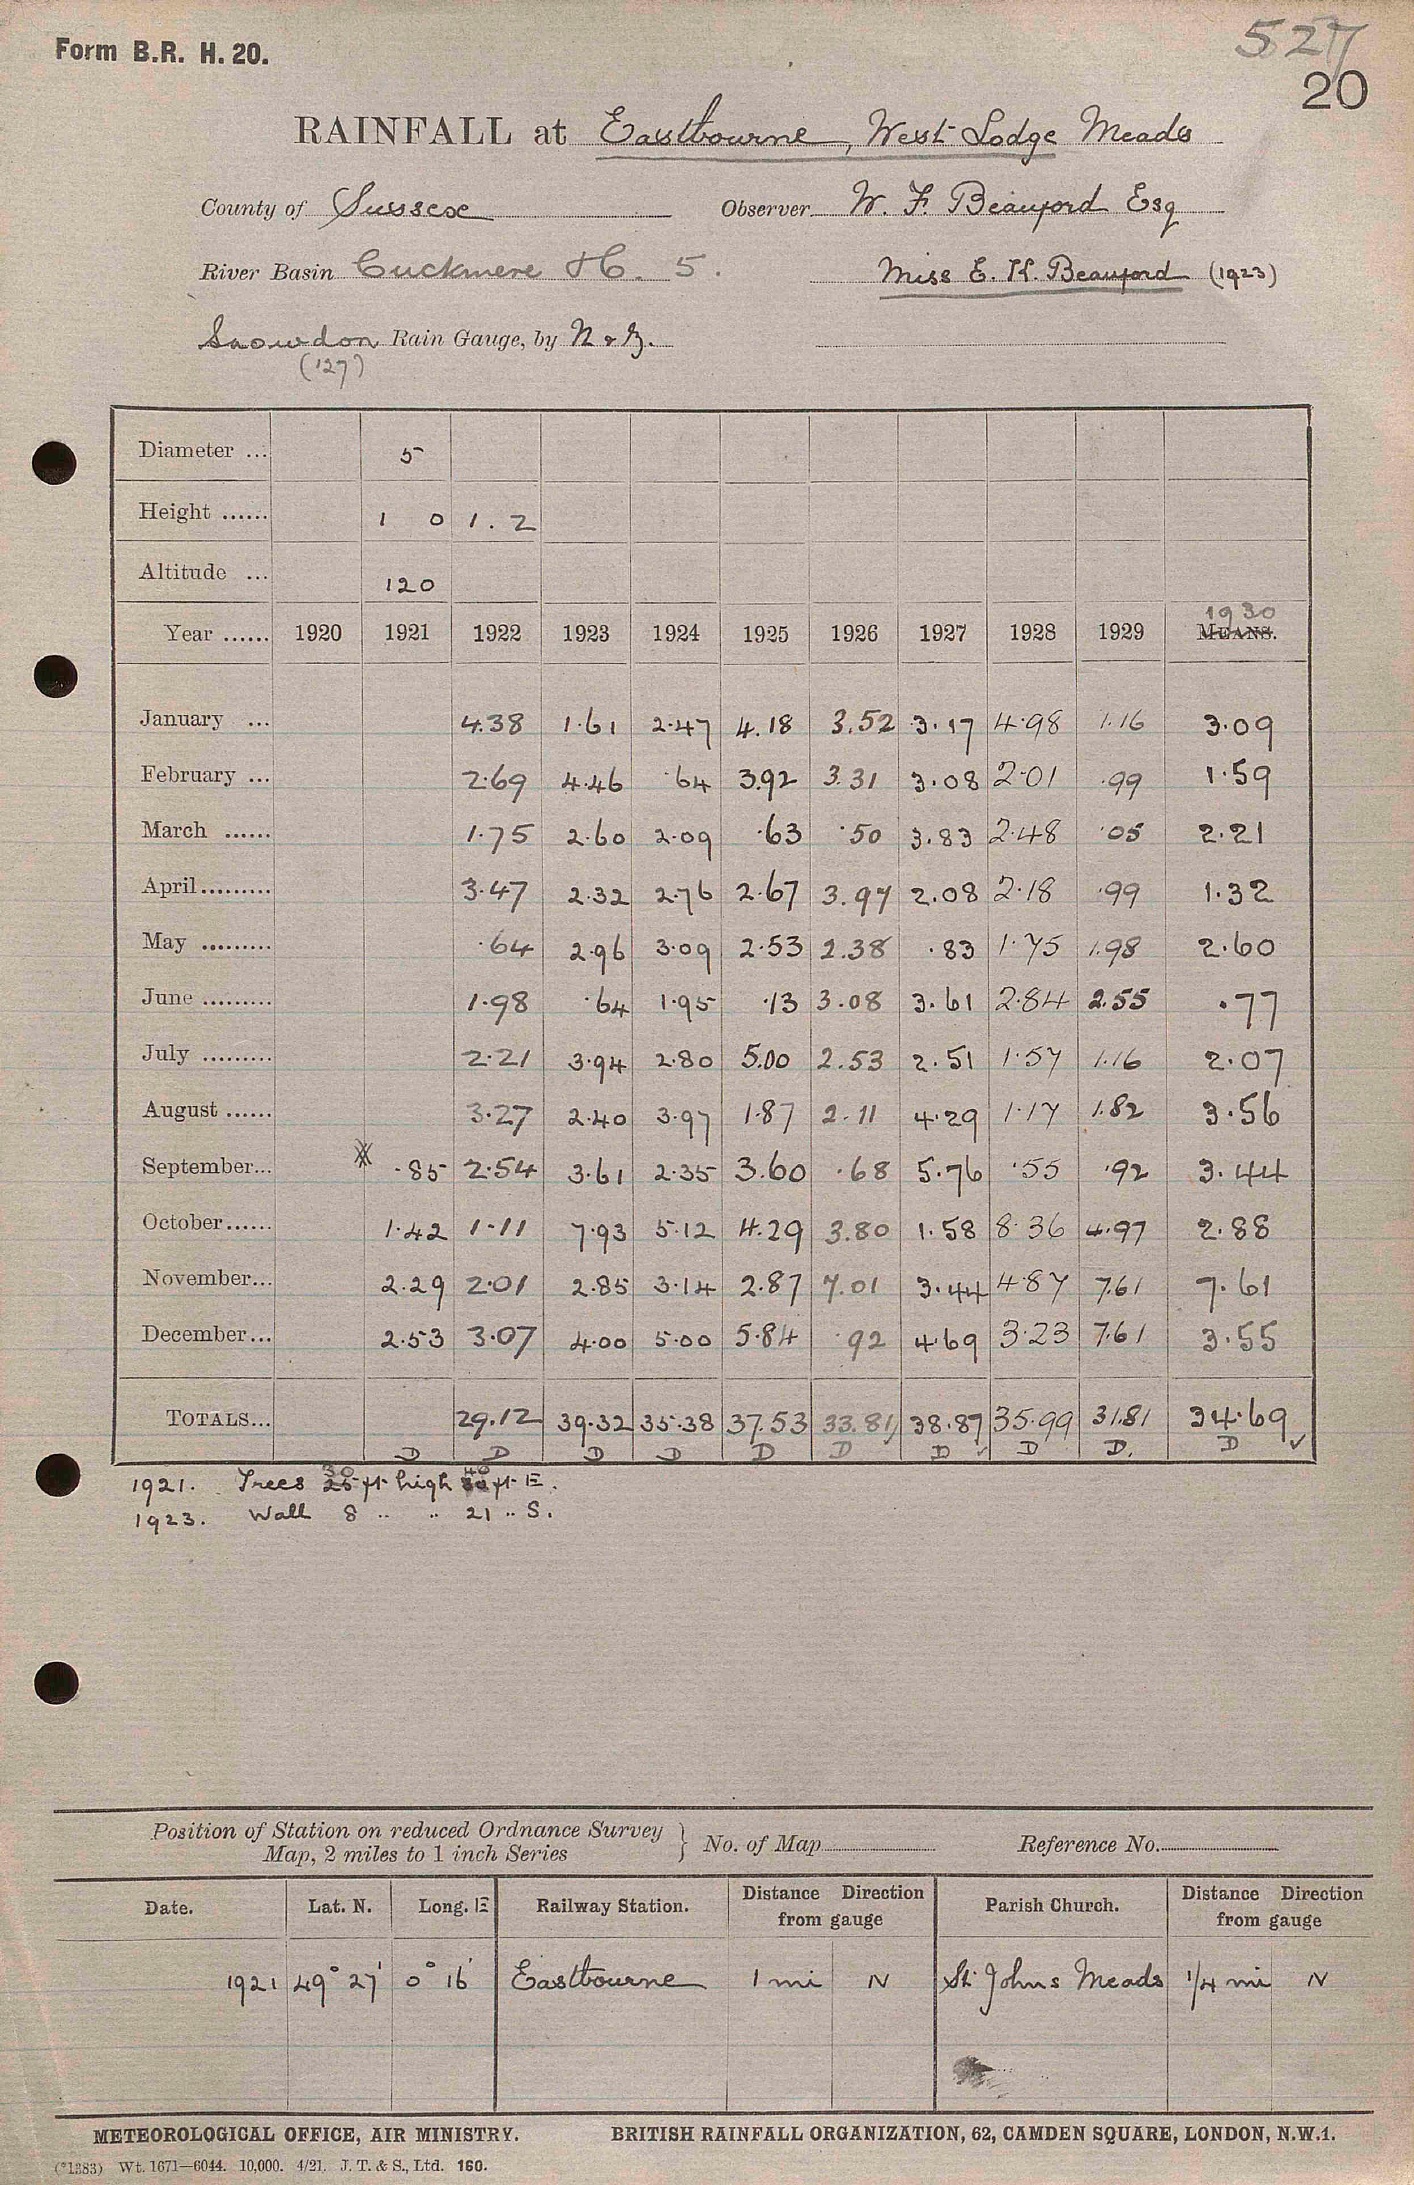 Form B.R. H. 20.
527
20
RAINFALL at Eastbourne, West Lodge Meads
County of Sussex Observer W. F. Beauford Esq
River Basin Cuckmere &c. 5. Miss E. K. Beauford (1923)
Snowdon Rain Gauge, by N & Z.
(127)
Diameter ... 5
Height ...... 1 0 1.2
Altitude ... 120
1930
Year ...... 1920 1921 1922 1923 1924 1925 1926 1927 1928 1929 MEANS.
January ... 4.38 1.61 2.47 4.18 3.52 3.17 4.98 1.16 3.09
February ... 2.69 4.46 .64 3.92 3.31 3.08 2.01 .99 1.59
March ...... 1.75 2.60 2.09 .63 .50 3.83 2.48 .05 2.21
April......... 3.47 2.32 2.76 2.67 3.97 2.08 2.18 .99 1.32
May ......... .64 2.96 3.09 2.53 2.38 .83 1.75 1.98 2.60
June ......... 1.98 .64 1.95 .13 3.08 3.61 2.84 2.55 .77
July ......... 2.21 3.94 2.80 5.00 2.53 2.51 1.57 1.16 2.07
August ...... 3.27 2.40 3.97 1.87 2.11 4.29 1.17 1.82 3.56
September... .85 2.54 3.61 2.35 3.60 .68 5.76 .55 .92 3.44
October...... 1.42 1.11 7.93 5.12 4.29 3.80 1.58 8.36 4.97 2.88
November... 2.29 2.01 2.85 3.14 2.87 7.01 3.44 4.87 7.61 7.61
December... 2.53 3.07 4.00 5.00 5.84 .92 4.69 3.23 7.61 3.55
TOTALS... 29.12 39.32 35.38 37.53 33.81 38.87 35.99 31.81 34.69
D D D D D D D D D. D ✓
30 40
1921. Trees 25 ft high ft E.
1923. Wall 8 .. .. 21 .. S.
Position of Station on reduced Ordnance Survey
Map, 2 miles to 1 inch Series } No. of Map Reference No.
Date. Lat. N. Long. E Railway Station. Distance Direction from gauge Parish Church. Distance Direction from gauge
1921 49° 27' 0° 16' Eastbourne 1 mi N St Johns Meads 1/4 mi N
METEOROLOGICAL OFFICE, AIR MINISTRY. BRITISH RAINFALL ORGANIZATION, 62, CAMDEN SQUARE, LONDON, N.W.1.
(*1383) Wt. 1671—6044. 10,000. 4/21. J. T. & S., Ltd. 160.